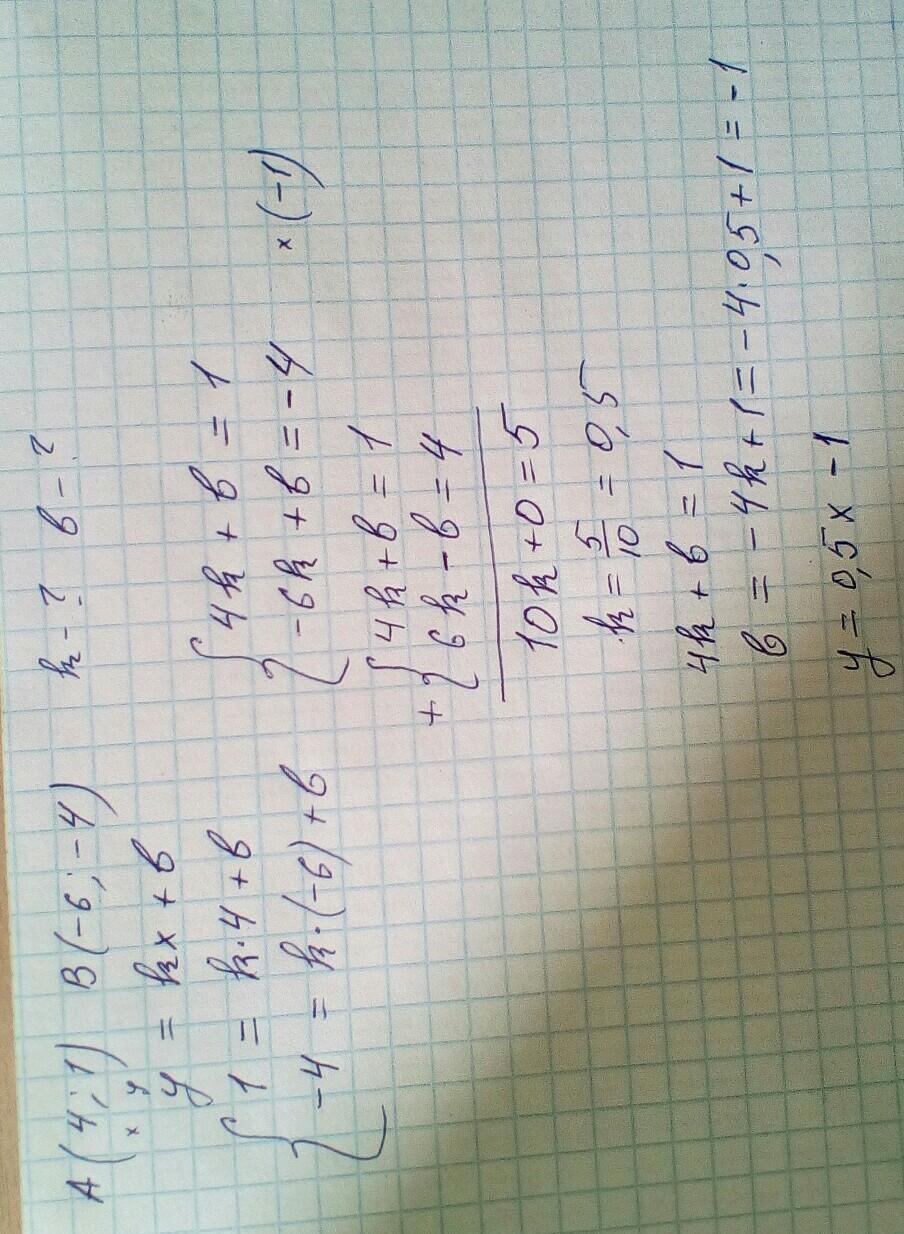 A(4;1) B(-6;-4) k-? в-?
x y
y = kx + в
{ 1 = k·4 + в
-4 = k·(-6) + в
{ 4k + в = 1
-6k + в = -4 ×(-1)
+ { 4k + в = 1
6k - в = 4
10k + 0 = 5
k = 5/10 = 0,5
4k + в = 1
в = -4k + 1 = -4·0,5 + 1 = -1
y = 0,5x - 1